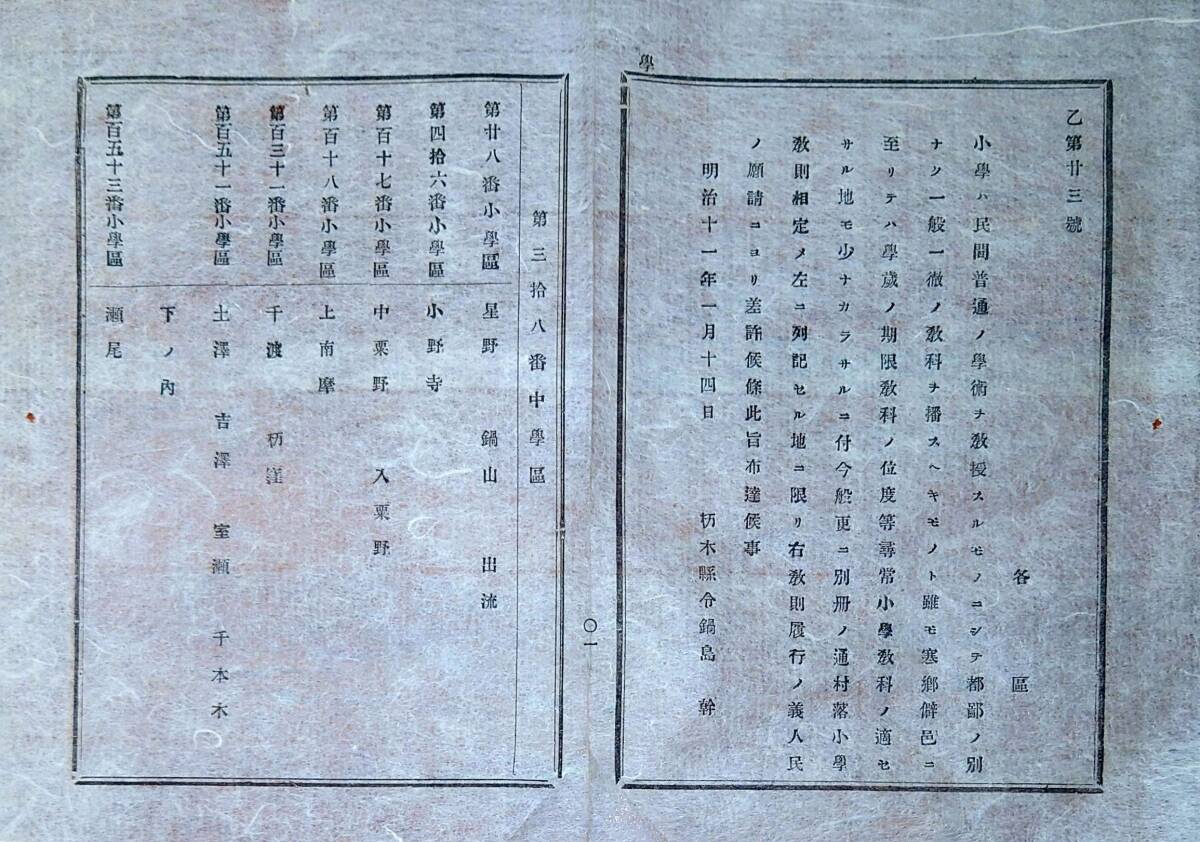 學
乙第廿三號
各區
小學ハ民間普通ノ學術ヲ敎授スルモノニシテ都鄙ノ別
ナク一般一徹ノ敎科ヲ播スヘキモノト雖モ寒鄕僻邑ニ
至リテハ學歲ノ期限敎科ノ位度等尋常小學敎科ノ適セ
サル地モ少ナカラサルニ付今般更ニ別册ノ通村落小學
敎則相定メ左ニ列記セル地ニ限リ右敎則履行ノ義人民
ノ願請ニヨリ差許候條此旨布達候事
明治十一年一月十四日 栃木縣令鍋島幹
〇一
第三拾八番中學區
第廿八番小學區 星野 鍋山 出流
第四拾六番小學區 小野寺
第百十七番小學區 中粟野 入粟野
第百十八番小學區 上南摩
第百三十一番小學區 千渡 栃窪
第百五十一番小學區 土澤 吉澤 室瀬 千本木
下ノ內
第百五十三番小學區 瀬尾